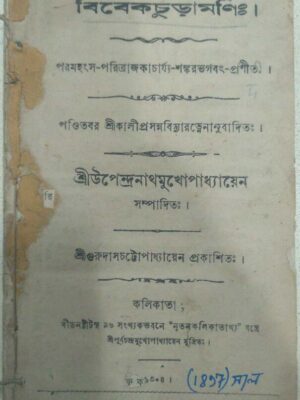 বিবেকচূড়ামণিঃ।
পরমহংস-পরিব্রাজকাচার্য্য-শঙ্করভগবৎ-প্রণীতঃ।
পণ্ডিতবর শ্রীকালীপ্রসন্নবিদ্যারত্নেনানুবাদিতঃ।
শ্রীউপেন্দ্রনাথমুখোপাধ্যায়েন
সম্পাদিতঃ।
শ্রীগুরুদাসচট্টোপাধ্যায়েন প্রকাশিতঃ।
কলিকাতা;
সংখ্যকভবনে "নূতনকলিকাতাখ্য" যন্ত্রে
শ্রীপূর্ণচন্দ্রমুখোপাধ্যায়েন মুদ্রিতঃ।
(1897) সাল